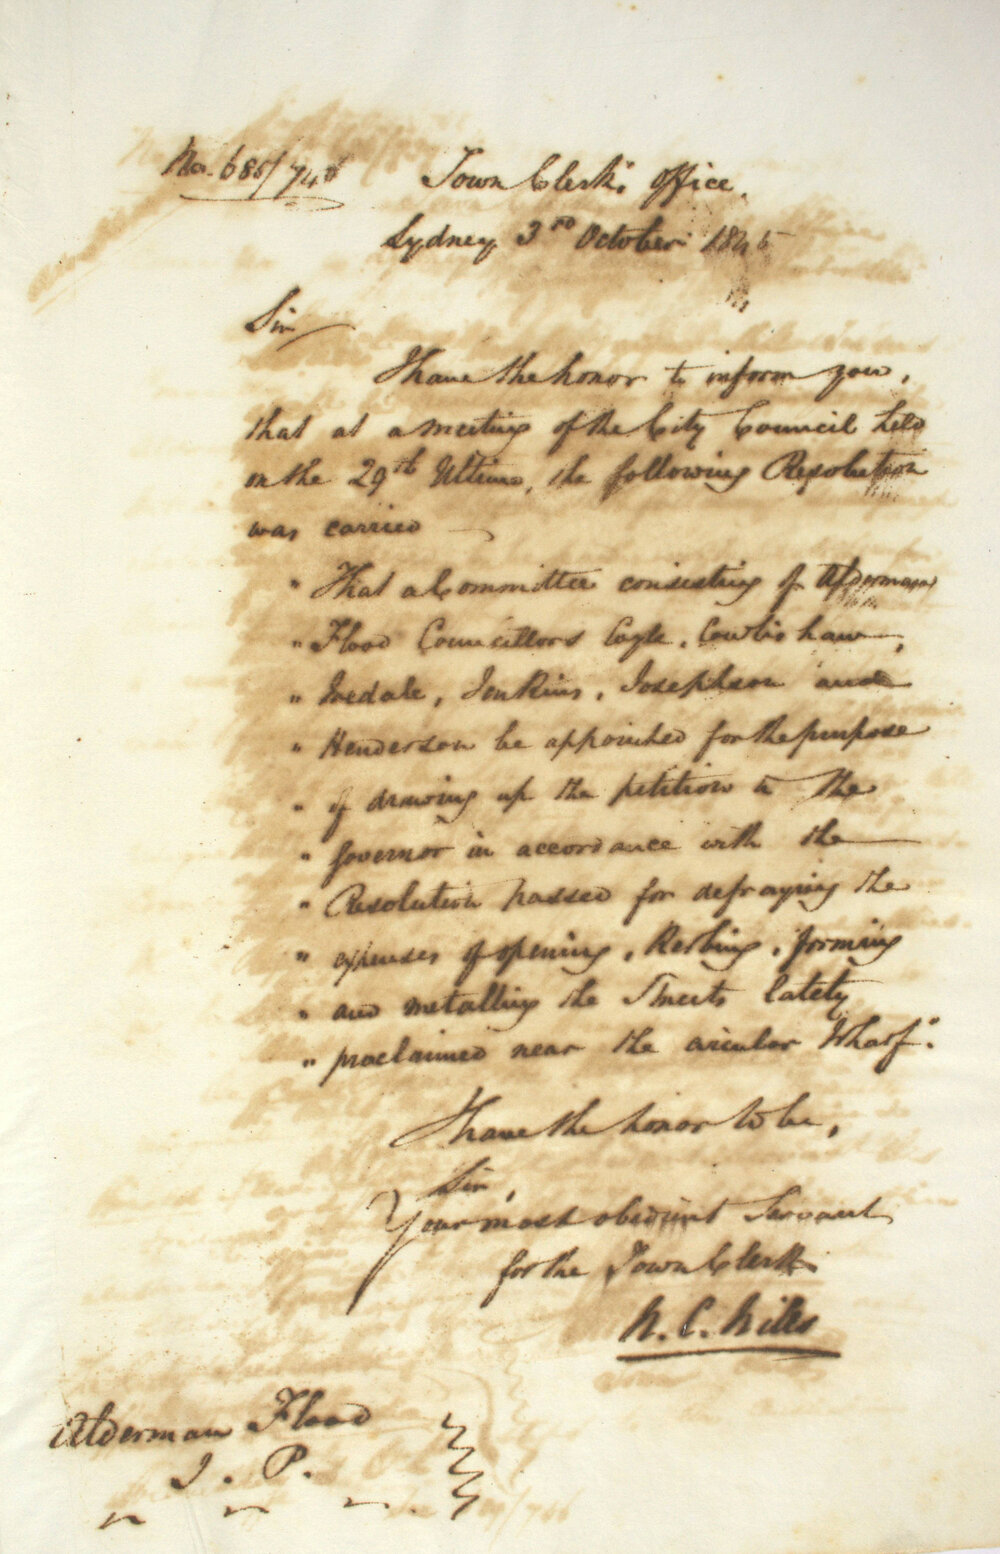 Town Clerk's Office,
Sydney 3rd October 1845
Sir
I have the honor to inform you,
that at a meeting of the City Council held
on the 29th Ultimo, the following Resolution
was carried
" That a Committee consisting of Alderman
" Flood Councillors Coyle, Cowlishaw,
" Iredale, Jenkins, Josephson and
" Henderson be appointed for the purpose
" of drawing up the petition to the
" Governor in accordance with the
" Resolution passed for defraying the
" expenses of opening, Kerbing, forming
" and metalling the Streets lately
" proclaimed near the circular Wharf".
I have the honor to be,
Sir,
Your most obedient Servant
for the Town Clerk
Alderman Flood
J. P.